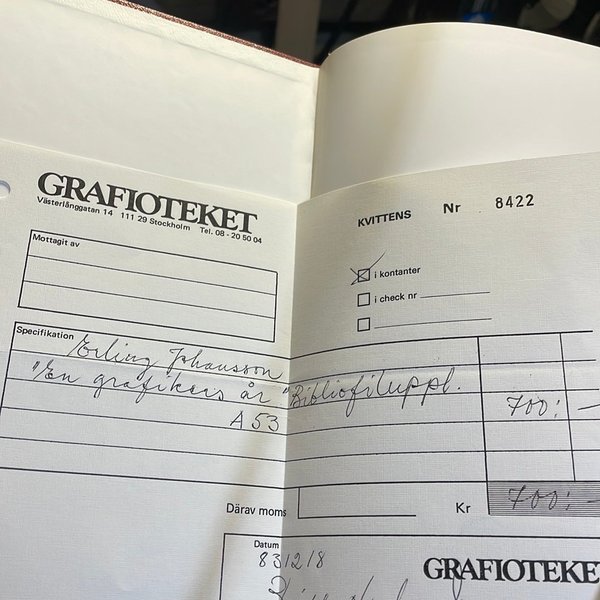 GRAFIOTEKET
Västerlånggatan 14 111 29 Stockholm Tel. 08 - 20 50 04
KVITTENS Nr 8422
Mottagit av
i kontanter
i check nr
Specifikation
Erling Johansson
"En grafikers år" Bibliofiluppl. 700:-
A 53
Därav moms
Kr 700:-
Datum
831218
GRAFIOTEKET